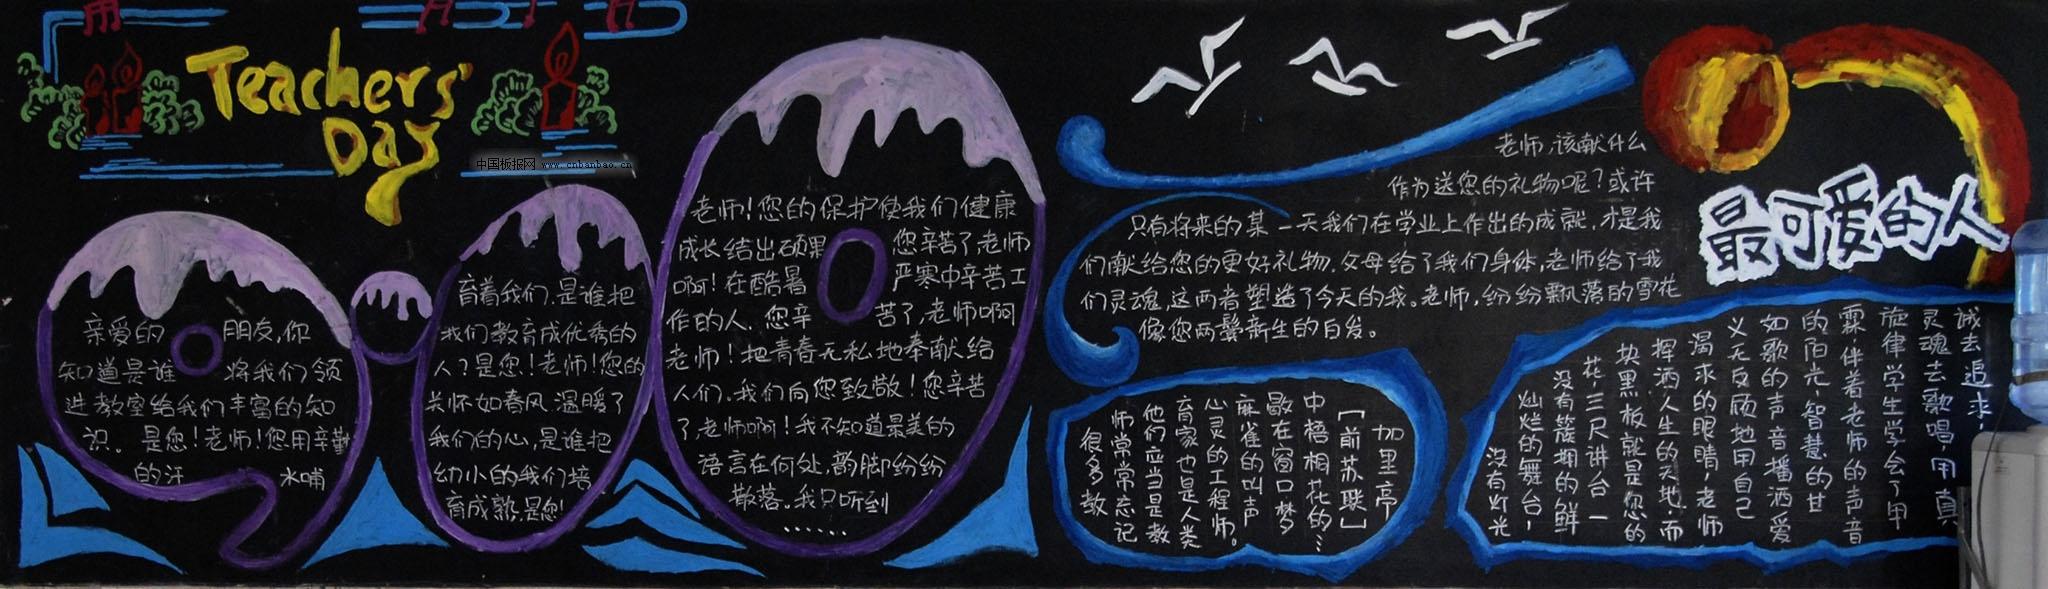 Teachers'
Day
中国板报网 www.cnbanbao.cn
亲爱的 朋友,你
知道是谁 将我们领
进教室给我们丰富的知
识。是您!老师!您用辛勤
的汗 水哺
育着我们,是谁把
我们教育成优秀的
人?是您!老师!您的
关怀如春风温暖了
我们的心,是谁把
幼小的我们培
育成熟,是您!
老师!您的保护使我们健康
成长结出硕果 您辛苦了,老师
啊!在酷暑 严寒中辛苦工
作的人.您辛 苦了,老师啊
老师!把青春无私地奉献给
人们.我们向您致敬!您辛苦
了,老师啊!我不知道最美的
语言在何处,韵脚纷纷
散落。我只听到
……
老师,该献什么
作为送您的礼物呢?或许
只有将来的某一天我们在学业上作出的成就,才是我
们献给您的更好礼物.父母给了我们身体,老师给了我
们灵魂,这两者塑造了今天的我。老师,纷纷飘落的雪花
像您两鬓新生的白发。
最可爱的人
很多教
师常常忘记
他们应当是教
育家也是人类
心灵的工程师。
麻雀的叫声
歇在窗口梦
中梧桐花的…
[前苏联]
加里亭
没有灯光
灿烂的舞台,
没有簇拥的鲜
花,三尺讲台一
块黑板就是您的
挥洒人生的天地.而
渴求的眼睛,老师
义无反顾地用自己
如歌的声音播洒爱
的阳光,智慧的甘
霖.伴着老师的声音
旋律学生学会了用
灵魂去歌唱用真
诚去追求,